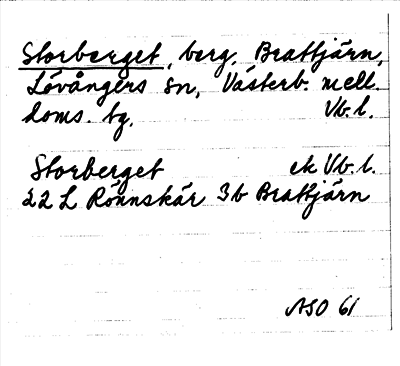 Storberget, berg, Brattjärn,
Lövångers sn, Västerb. mell.
doms. tg. Vb. l.
Storberget ek Vb. l.
22 L Rönnskär 3b Brattjärn
ASO 61